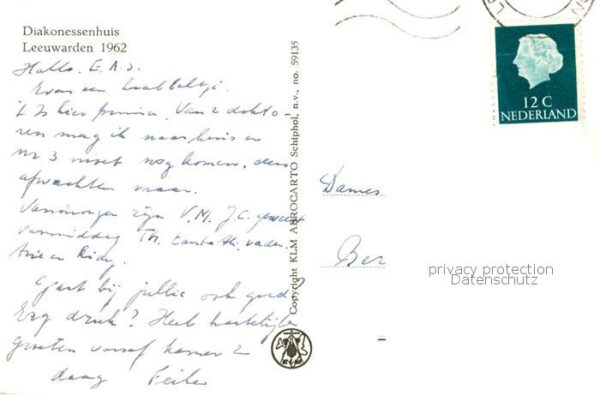 Diakonessenhuis
Leeuwarden 1962
Hallo. E. A. J.
Even een krabbeltje.
't Is hier prima. Van 2 dokto-
ren mag ik naar huis en
nr 3 moet nog komen, dus
afwachten maar.
Vanmorgen zijn V.M. J.C. geweest
vanmiddag Th. vader.
en
Gaat bij jullie ook goed?
Erg druk? Heel hartelijke
groeten vanaf kamer 2
daag
Copyright KLM AEROCARTO Schiphol, n.v., no. 59135
12 C
NEDERLAND
Dames
Ber
privacy protection
Datenschutz